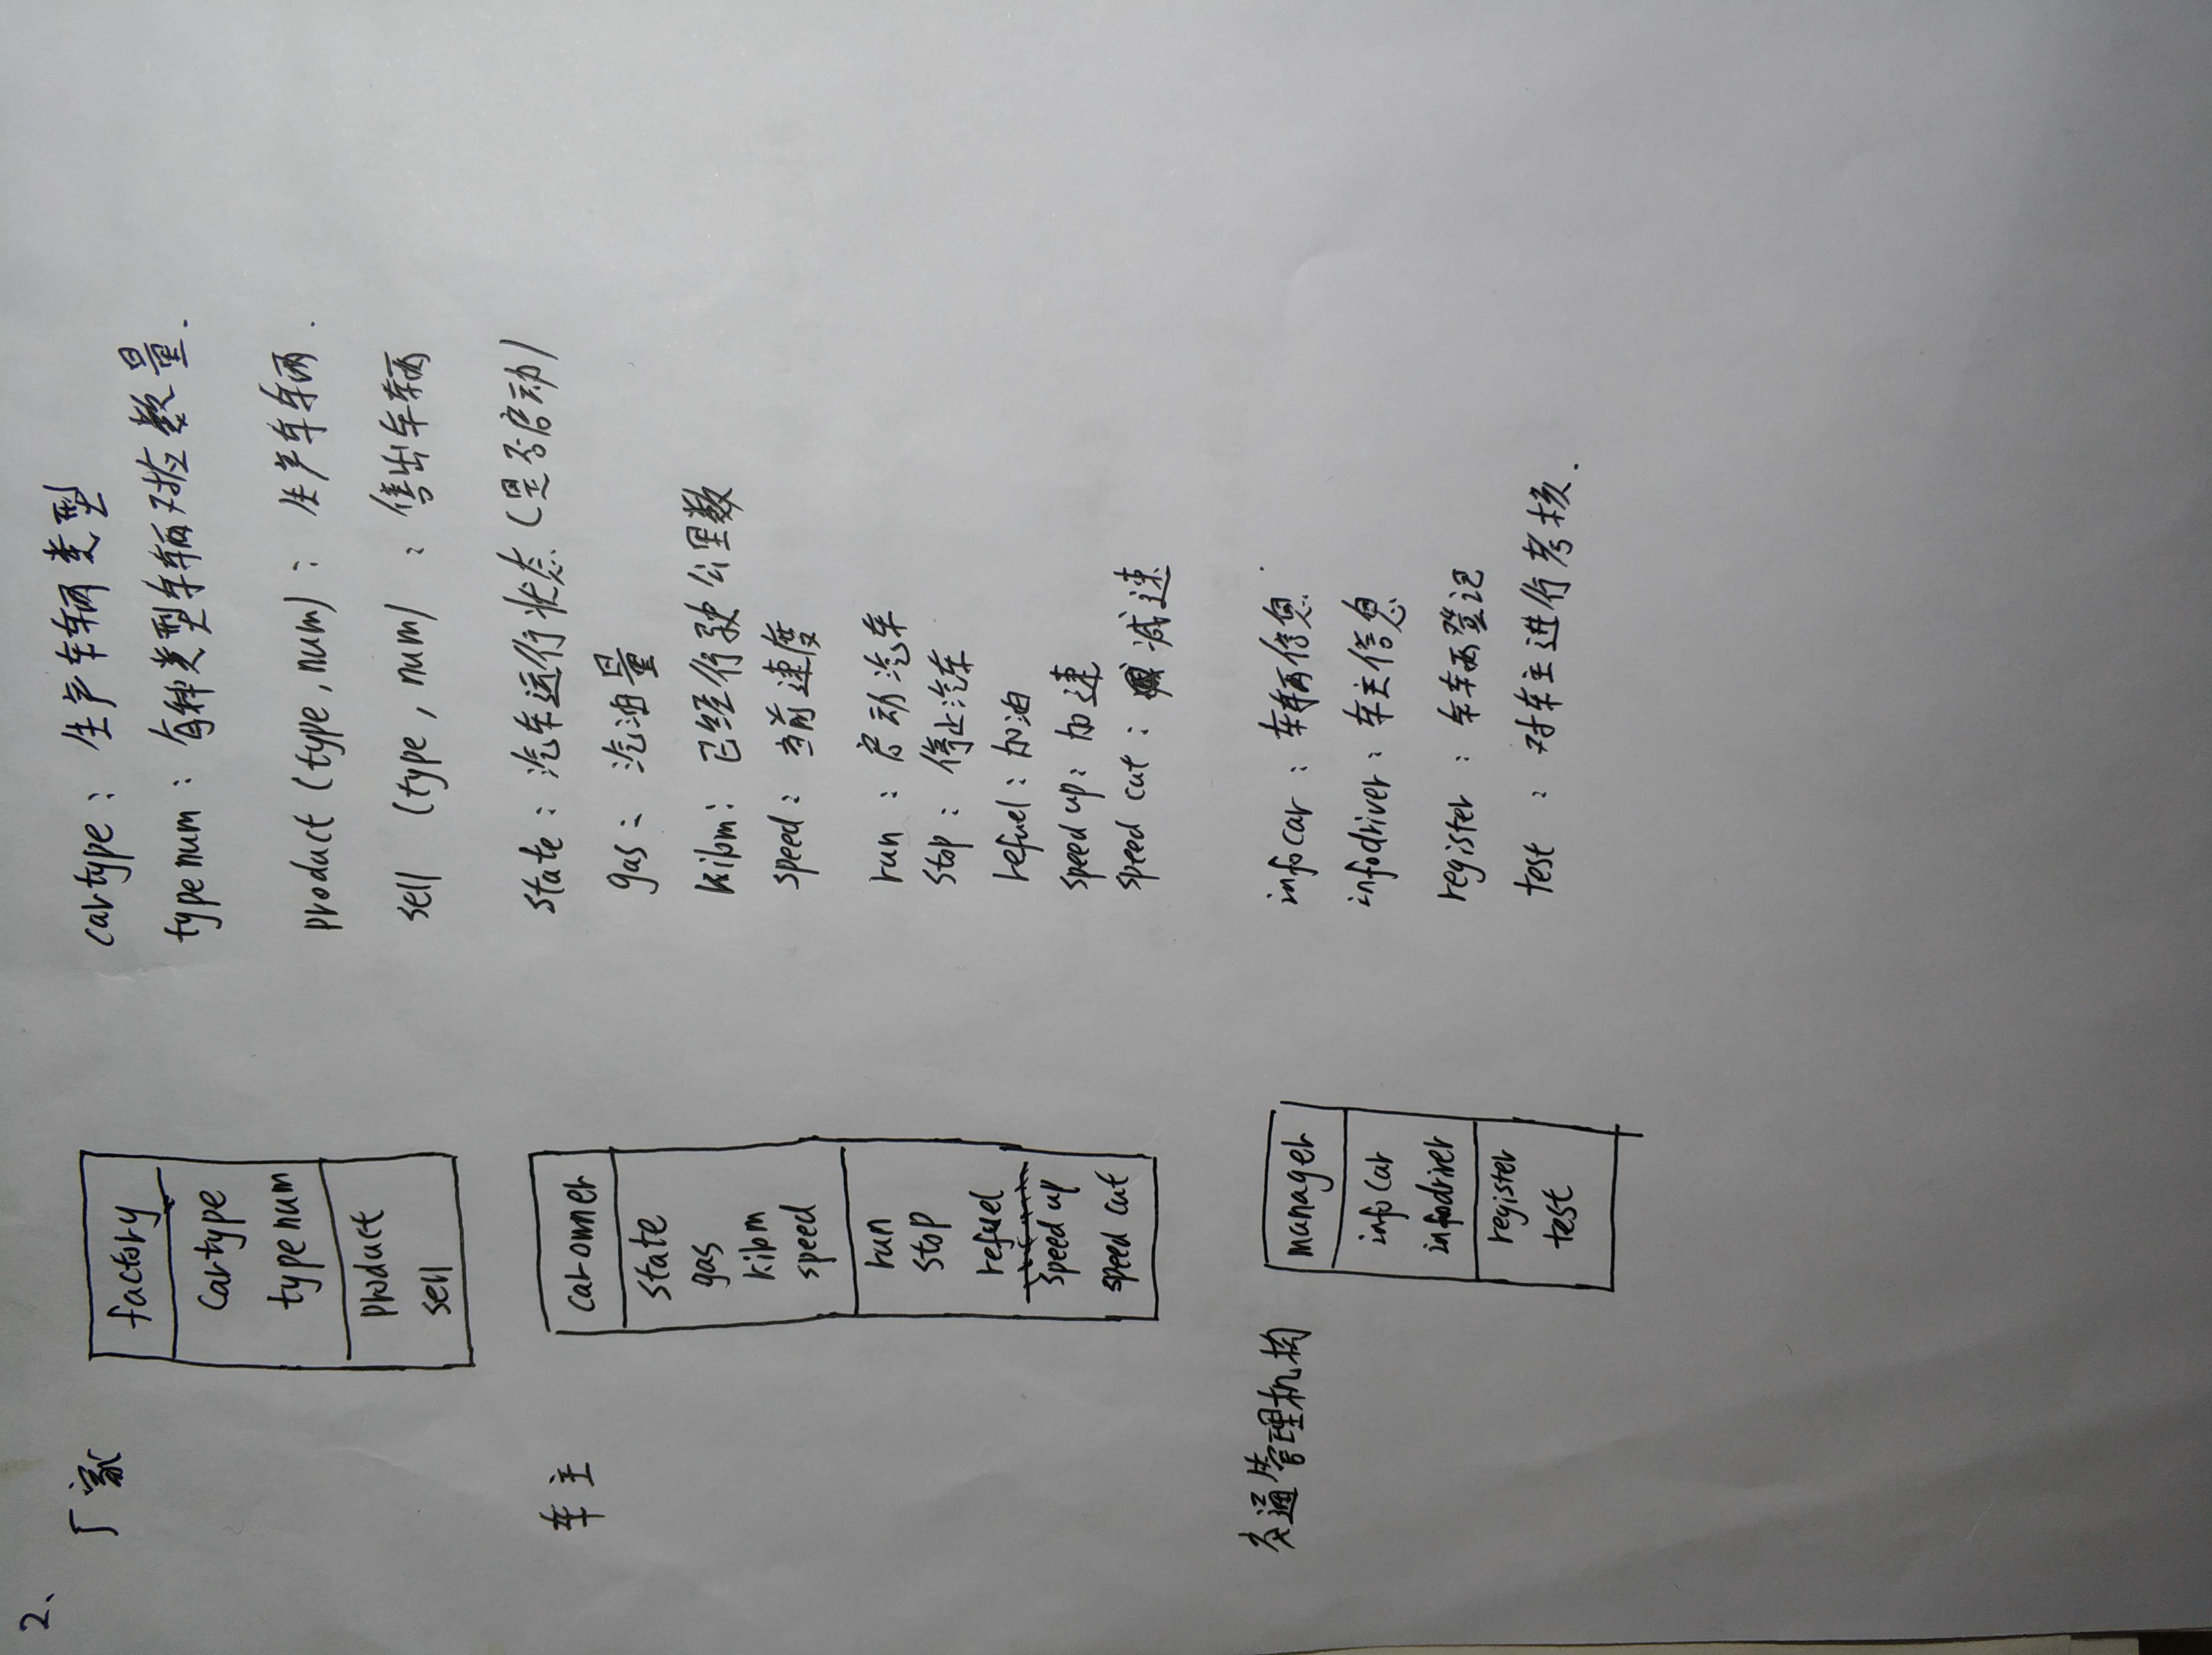 2、
厂家
factory
cartype
typenum
product
sell
cartype：生产车辆类型
typenum：每种类型车辆对应数量.
product (type, num)：生产车辆.
sell (type, num)：售出车辆
车主
carowner
state
gas
kilom
speed
run
stop
refuel
speed up
speed cut
state：汽车运行状态(是否启动)
gas：汽油量
kilom：已经行驶公里数
speed：当前速度
run：启动汽车
stop：停止汽车
refuel：加油
speed up：加速
speed cut：减速
交通管理机构
manager
infocar
infodriver
register
test
infocar：车辆信息
infodriver：车主信息
register：车辆登记
test：对车主进行考核.